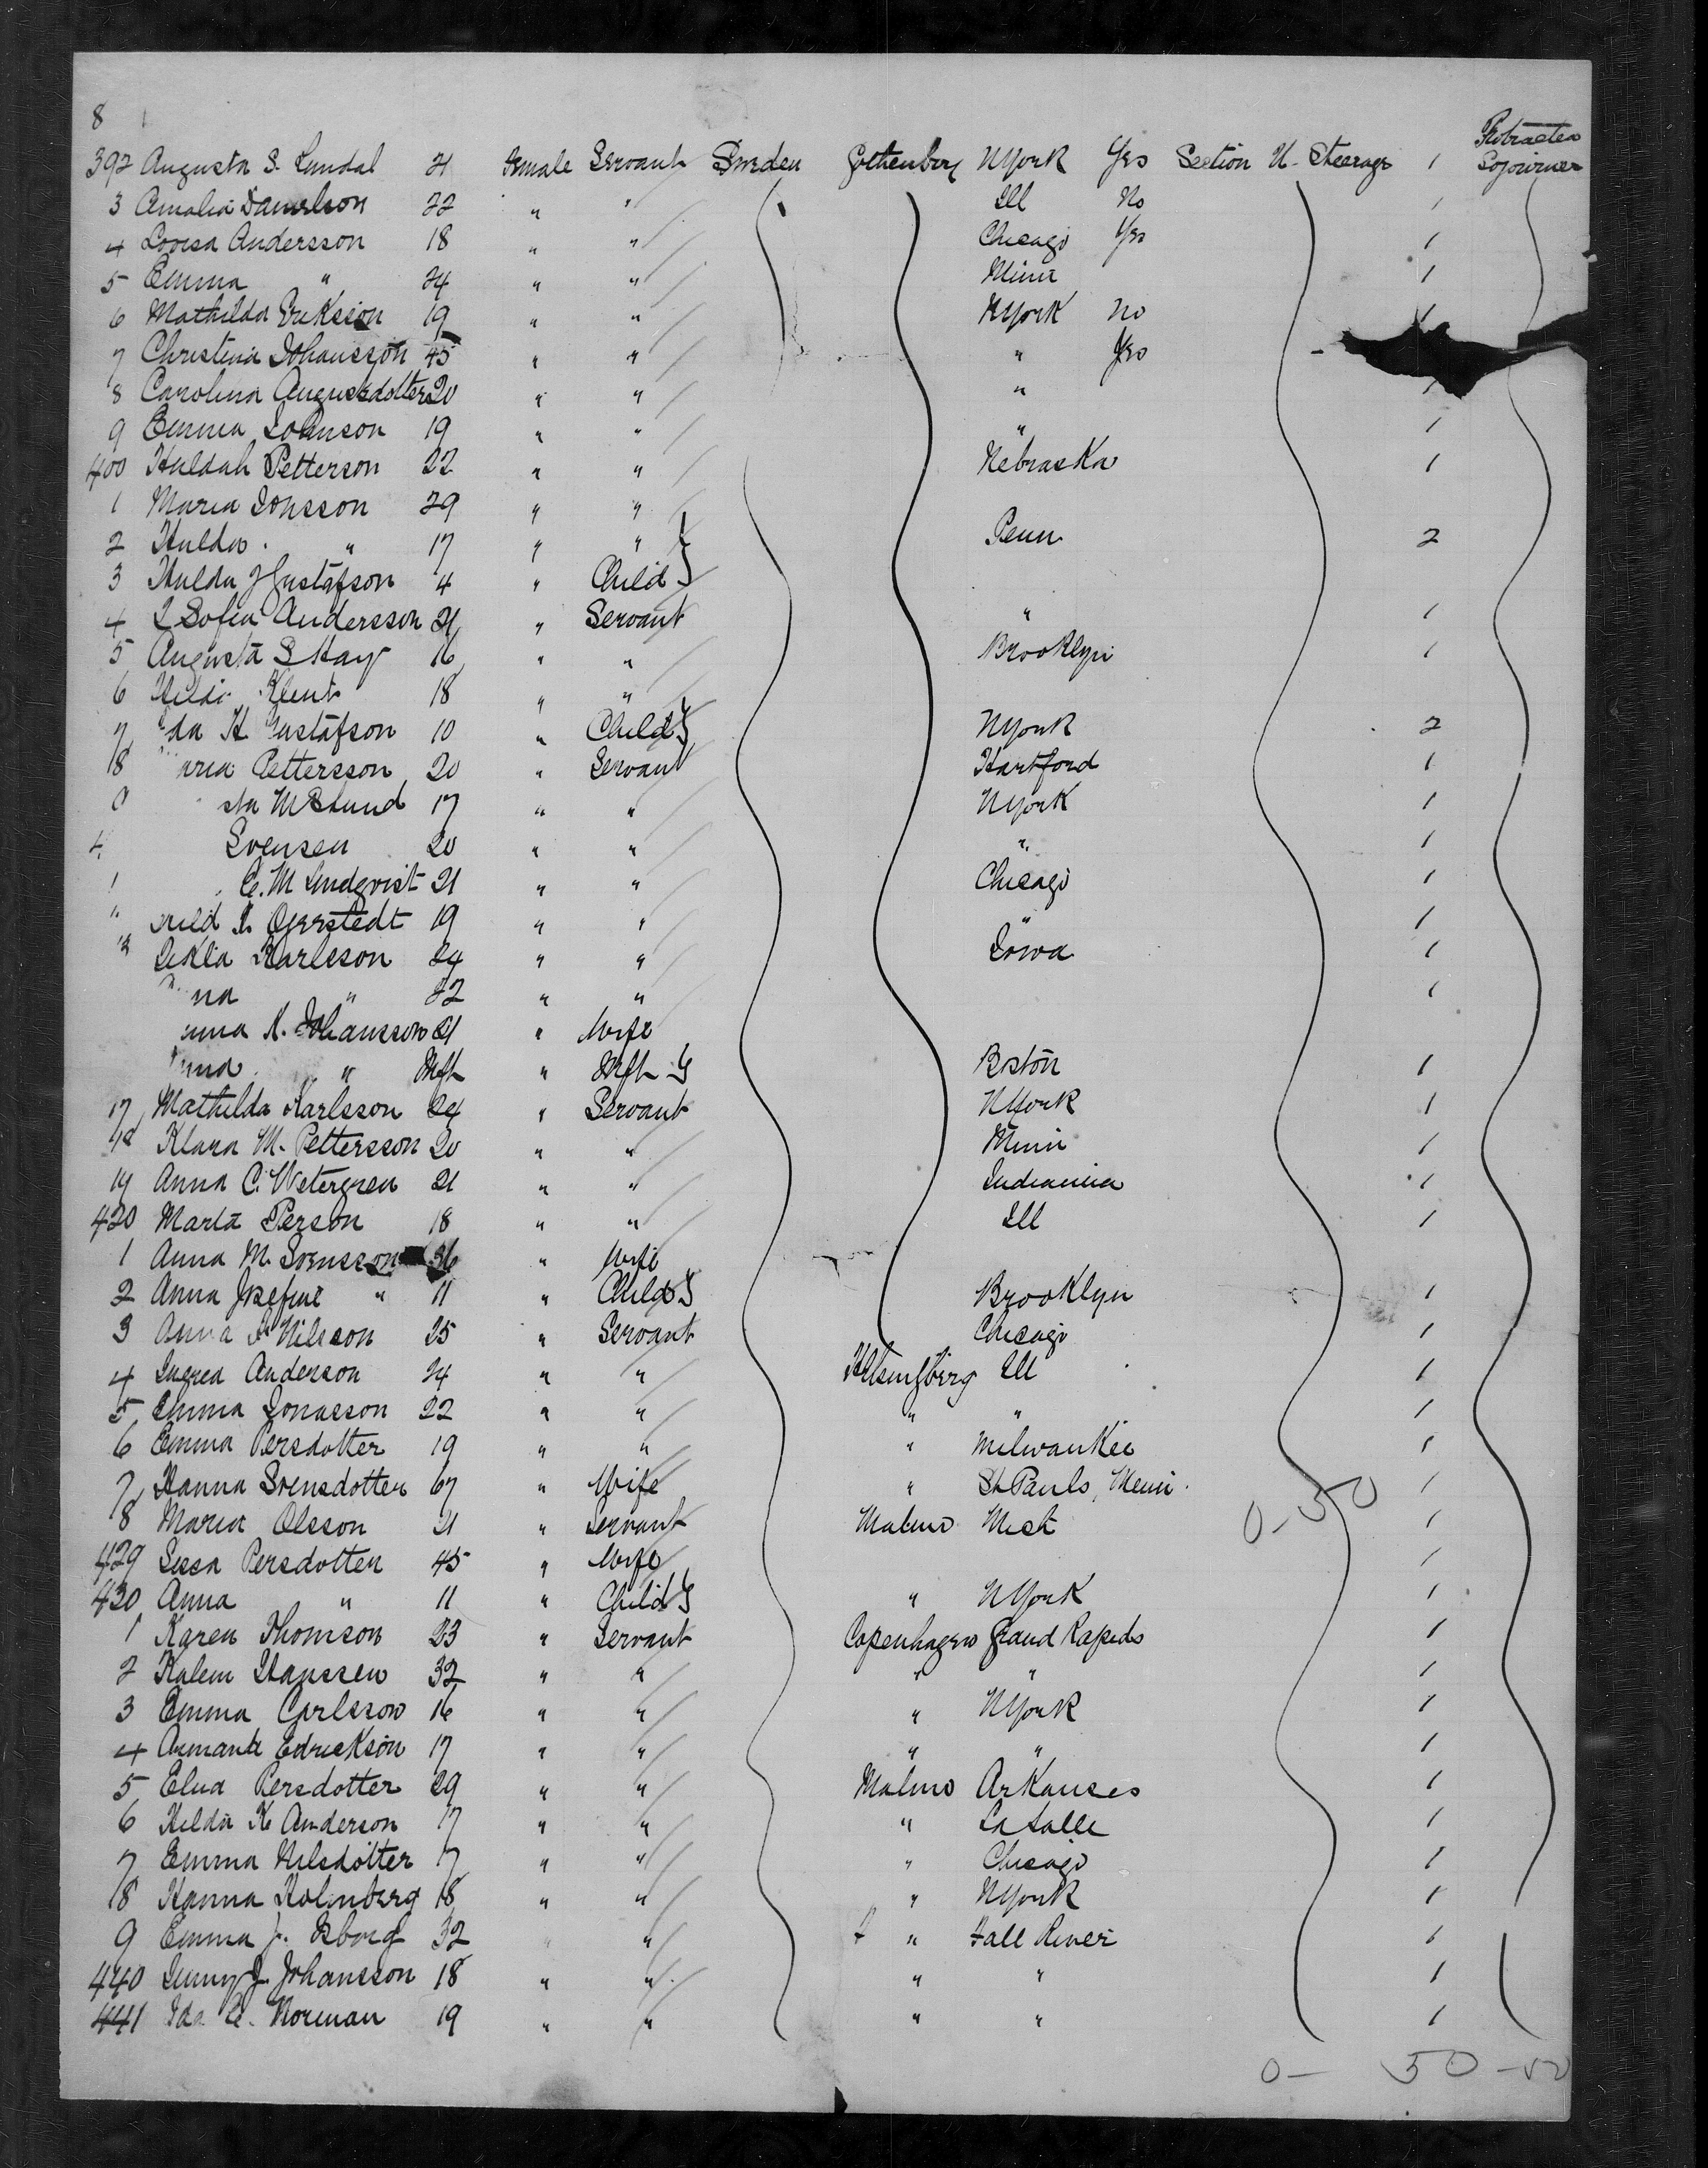 8
Protracted
392 Augusta S. Lundal 21 Female Servant Sweden Gothenborg NYork Yes Section U. Steerage 1 Sojourner
3 Amalia Danielson 22 " " Ill No 1
4 Lovisa Andersson 18 " " Chicago Yes 1
5 Emma " 24 " " Minn 1
6 Mathilda Eriksson 19 " " NYork No 1
7 Christina Johansson 45 " " " Yes
8 Carolina Augustsdotter 20 " " " 1
9 Emma Johnson 19 " " " 1
400 Huldah Petterson 22 " " Nebraska 1
1 Maria Jonsson 29 " "
2 Hulda " 17 " " Penn 2
3 Hulda J Gustafson 4 " Child
4 L Sofia Andersson 21 " Servant " 1
5 Augusta S Hay 16 " " Brooklyn 1
6 Klent 18 " "
7 da H Gustafson 10 " Child NYork 2
8 aria Pettersson 20 " Servant Hartford 1
sta M 17 " " NYork 1
4 Svensen 20 " " " 1
1 C. M Lindqvist 21 " " Chicago 1
19 " " " 1
Karlsson 24 " " Iowa 1
na " 22 " " 1
nna K. Johansson 21 " Wife
nna " Inft " Inft Boston 1
17 Mathilda Karlsson 24 " Servant NYork 1
18 Klara M. Pettersson 20 " " Minn 1
19 Anna C. Wetergren 21 " " Indianna 1
420 Marta Person 18 " " Ill 1
1 Anna M. Svensson 36 " Wife
2 Anna Josefine " 11 " Child Brooklyn 1
3 Anna Nilsson 25 " Servant Chicago 1
4 Ingred Anderson 24 " " Helsingborg Ill 1
5 Emma Jonasson 22 " " " " 1
6 Emma Persdotter 19 " " " Milwaukee 1
7 Hanna Svensdotter 67 " Wife " St Pauls, Minn. 1
0-50
8 Maria Olsson 21 " Servant Malmo Mich 1
429 Sissa Persdotter 45 " Wife 1
430 Anna " 11 " Child " NYork 1
1 Karen Thomson 23 " Servant Copenhagen Grand Rapids 1
2 Kalem Hanssen 32 " " " " 1
3 Emma Carlsson 16 " " " NYork 1
4 Edrickson 17 " " " " 1
5 Elna Persdotter 29 " " Malmo Arkanses 1
6 Hilda K Anderson 17 " " " La Salle 1
7 Emma Nilsdotter 17 " " " Chicago 1
8 Hanna Holmberg 18 " " " NYork 1
9 Emma J. 32 " " " Fall River 1
440 Jenny J. Johansson 18 " " " " 1
441 Ida C. Norman 19 " " " " 1
0- 50-50